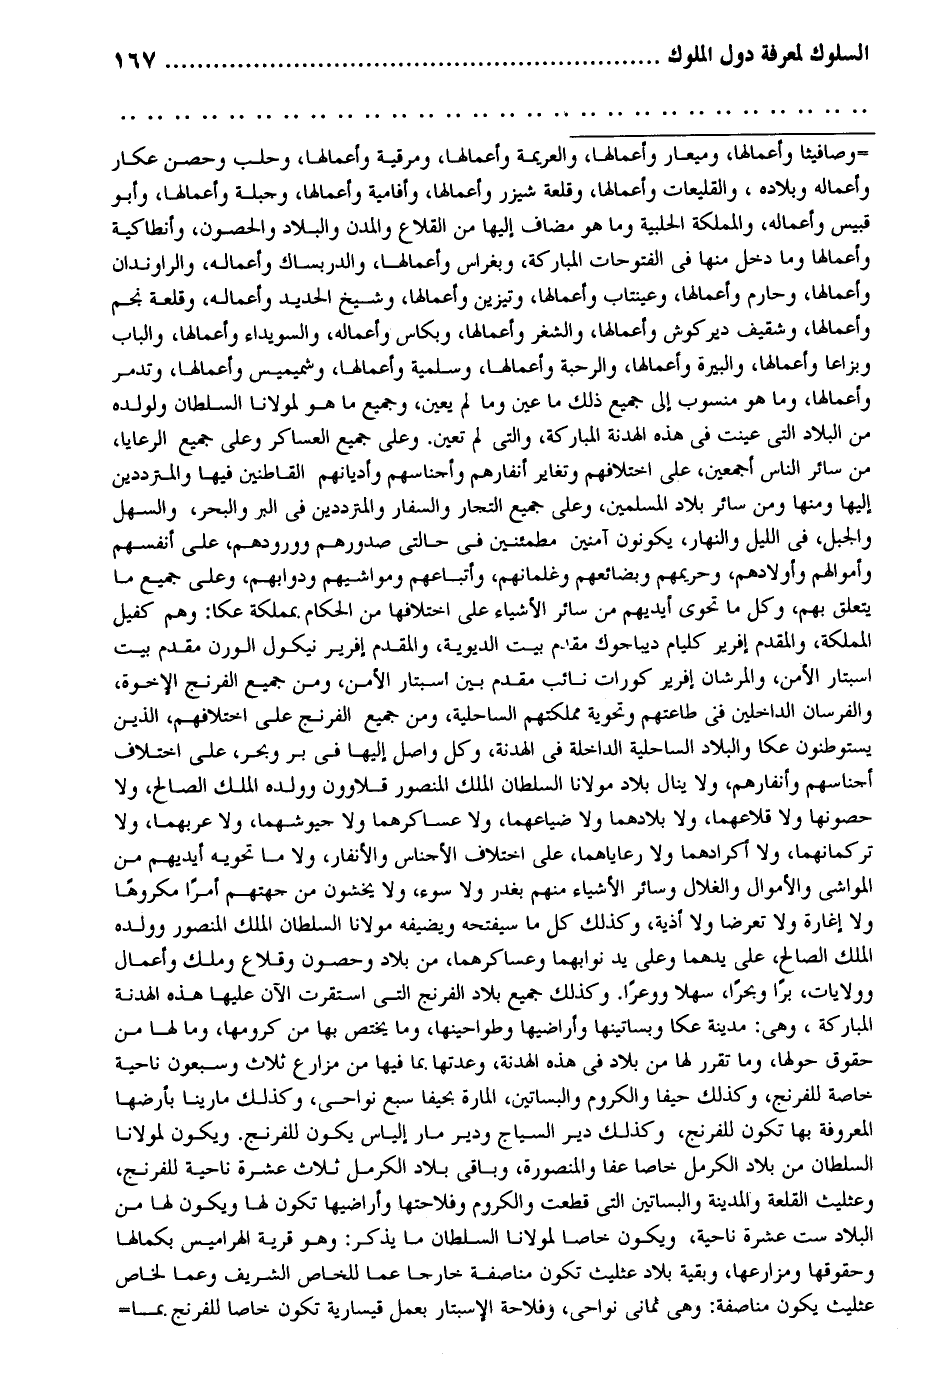 السلوك لمعرفة دول الملوك ............................................................... ١٦٧
.. .. .. .. .. .. .. .. .. .. .. .. .. .. .. .. .. .. .. .. .. .. .. .. .. .. .. ..
=وصافيثا وأعمالها، وميعار وأعمالها، والعريمة وأعمالها، ومرقية وأعمالها، وحلب وحصن عكار
وأعماله وبلاده ، والقليعات وأعمالها، وقلعة شيزر وأعمالها، وأفامية وأعمالها، وجبلة وأعمالها، وأبو
قبيس وأعماله، والمملكة الحلبية وما هو مضاف إليها من القلاع والمدن والبلاد والحصون، وأنطاكية
وأعمالها وما دخل منها فى الفتوحات المباركة، وبغراس وأعمالها، والدربساك وأعماله، والراوندان
وأعمالها، وحارم وأعمالها، وعينتاب وأعمالها، وتيزين وأعمالها، وشيخ الحديد وأعماله، وقلعة نجم
وأعمالها، وشقيف ديركوش وأعمالها، والشغر وأعمالها، وبكاس وأعماله، والسويداء وأعمالها، والباب
وبزاعا وأعمالها، والبيرة وأعمالها، والرحبة وأعمالها، وسلمية وأعمالها، وشميميس وأعمالها، وتدمر
وأعمالها، وما هو منسوب إلى جميع ذلك ما عين وما لم يعين، وجميع ما هو لمولانا السلطان ولولده
من البلاد التى عينت فى هذه الهدنة المباركة، والتى لم تعين. وعلى جميع العساكر وعلى جميع الرعايا،
من سائر الناس أجمعين، على اختلافهم وتغاير أنفارهم وأجناسهم وأديانهم القاطنين فيها والمترددين
إليها ومنها ومن سائر بلاد المسلمين، وعلى جميع التجار والسفار والمترددين فى البر والبحر، والسهل
والجبل، فى الليل والنهار، يكونون آمنين مطمئنين فى حالتى صدورهم وورودهم، على أنفسهم
وأموالهم وأولادهم، وحريمهم وبضائعهم وغلمانهم، وأتباعهم ومواشيهم ودوابهم، وعلى جميع ما
يتعلق بهم، وكل ما تحوى أيديهم من سائر الأشياء على اختلافها من الحكام بمملكة عكا: وهم كفيل
المملكة، والمقدم إفرير كليام ديباجوك مقدم بيت الديوية، والمقدم إفرير نيكول الورن مقدم بيت
اسبتار الأمن، والمرشان إفرير كورات نائب مقدم بين اسبتار الأمن، ومن جميع الفرنج الإخوة،
والفرسان الداخلين فى طاعتهم وتحوية مملكتهم الساحلية، ومن جميع الفرنج على اختلافهم، الذين
يستوطنون عكا والبلاد الساحلية الداخلة فى الهدنة، وكل واصل إليها فى بر وبحر، على اختلاف
أجناسهم وأنفارهم، ولا ينال بلاد مولانا السلطان الملك المنصور قلاوون وولده الملك الصالح، ولا
حصونها ولا قلاعهما، ولا بلادهما ولا ضياعهما، ولا عساكرهما ولا جيوشهما، ولا عربهما، ولا
تركمانهما، ولا أكرادهما ولا رعاياهما، على اختلاف الأجناس والأنفار، ولا ما تحويه أيديهم من
المواشى والأموال والغلال وسائر الأشياء منهم بغدر ولا سوء، ولا يخشون من جهتهم أمرًا مكروهًا
ولا إغارة ولا تعرضا ولا أذية، وكذلك كل ما سيفتحه ويضيفه مولانا السلطان الملك المنصور وولده
الملك الصالح، على يدهما وعلى يد نوابهما وعساكرهما، من بلاد وحصون وقلاع وملك وأعمال
وولايات، برًا وبحرًا، سهلا ووعرًا. وكذلك جميع بلاد الفرنج التى استقرت الآن عليها هذه الهدنة
المباركة ، وهى: مدينة عكا وبساتينها وأراضيها وطواحينها، وما يختص بها من كرومها، وما لها من
حقوق حولها، وما تقرر لها من بلاد فى هذه الهدنة، وعدتها بما فيها من مزارع ثلاث وسبعون ناحية
خاصة للفرنج، وكذلك حيفا والكروم والبساتين، المارة بحيفا سبع نواحى، وكذلك مارينا بأرضها
المعروفة بها تكون للفرنج، وكذلك دير السياج ودير مار إلياس يكون للفرنج. ويكون لمولانا
السلطان من بلاد الكرمل خاصا عفا والمنصورة، وباقى بلاد الكرمل ثلاث عشرة ناحية للفرنج،
وعثليث القلعة والمدينة والبساتين التى قطعت والكروم وفلاحتها وأراضيها تكون لها ويكون لها من
البلاد ست عشرة ناحية، ويكون خاصا لمولانا السلطان ما يذكر: وهو قرية الهراميس بكمالها
وحقوقها ومزارعها، وبقية بلاد عثليث تكون مناصفة خارجا عما للخاص الشريف وعما لخاص
عثليث يكون مناصفة: وهى ثمانى نواحى، وفلاحة الإسبتار بعمل قيسارية تكون خاصا للفرنج بما=